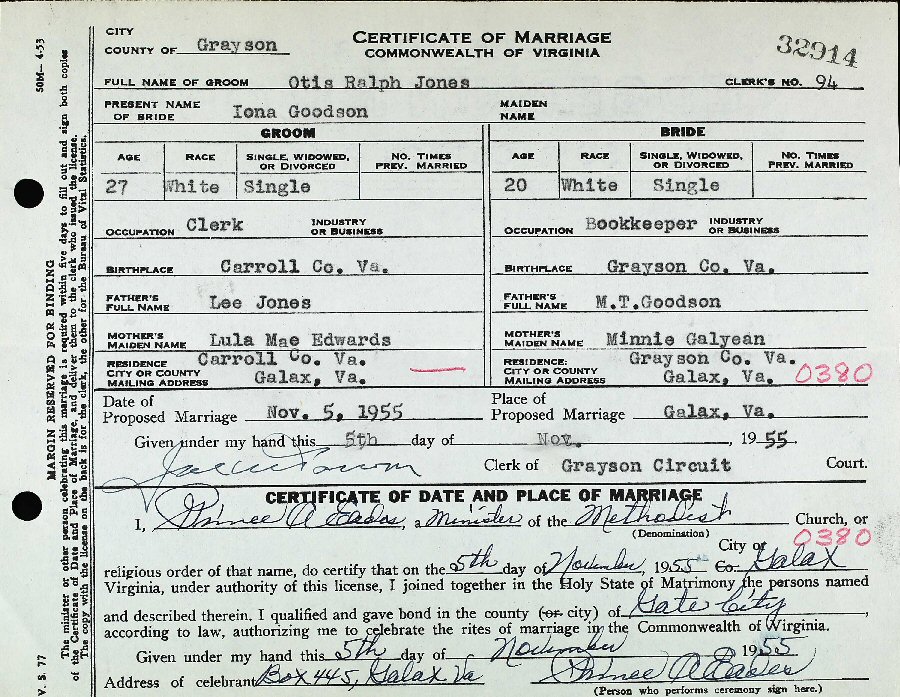 CITY
COUNTY OF Grayson
CERTIFICATE OF MARRIAGE
COMMONWEALTH OF VIRGINIA
32914
FULL NAME OF GROOM Otis Ralph Jones CLERK'S NO. 94
PRESENT NAME OF BRIDE Iona Goodson MAIDEN NAME
GROOM BRIDE
AGE RACE SINGLE, WIDOWED, OR DIVORCED NO. TIMES PREV. MARRIED AGE RACE SINGLE, WIDOWED, OR DIVORCED NO. TIMES PREV. MARRIED
27 White Single 20 White Single
OCCUPATION Clerk INDUSTRY OR BUSINESS OCCUPATION Bookkeeper INDUSTRY OR BUSINESS
BIRTHPLACE Carroll Co. Va. BIRTHPLACE Grayson Co. Va.
FATHER'S FULL NAME Lee Jones FATHER'S FULL NAME M.T.Goodson
MOTHER'S MAIDEN NAME Lula Mae Edwards MOTHER'S MAIDEN NAME Minnie Galyean
RESIDENCE CITY OR COUNTY Carroll Co. Va. RESIDENCE: CITY OR COUNTY Grayson Co. Va.
MAILING ADDRESS Galax, Va. MAILING ADDRESS Galax, Va. 0380
Date of Proposed Marriage Nov. 5, 1955 Place of Proposed Marriage Galax, Va.
Given under my hand this 5th day of Nov. , 1955.
Clerk of Grayson Circuit Court.
CERTIFICATE OF DATE AND PLACE OF MARRIAGE
I, Eades, a Minister of the Methodist Church, or
(Denomination)
0380
religious order of that name, do certify that on the 5th day of November, 1955 City or Co. Galax
Virginia, under authority of this license, I joined together in the Holy State of Matrimony the persons named
and described therein. I qualified and gave bond in the county (or city) of Gate City,
according to law, authorizing me to celebrate the rites of marriage in the Commonwealth of Virginia.
Given under my hand this 5th day of November 1955
Address of celebrant Box 445, Galax Va Eades
(Person who performs ceremony sign here.)
V. S. 77
50M—4-53
MARGIN RESERVED FOR BINDING
The minister or other person celebrating this marriage is required within five days to fill out and sign both copies
of the Certificate of Date and Place of Marriage, and deliver them to the clerk who issued the license.
The copy with the license on the back is for the clerk, the other for the Bureau of Vital Statistics.